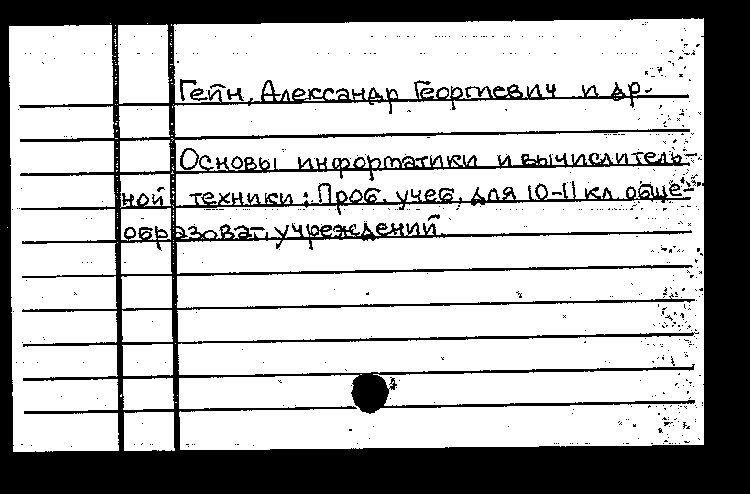 Гейн, Александр Георгиевич и др.
Основы информатики и вычислитель-
ной техники: Проб. учеб. для 10-11 кл. обще-
образоват. учреждений.